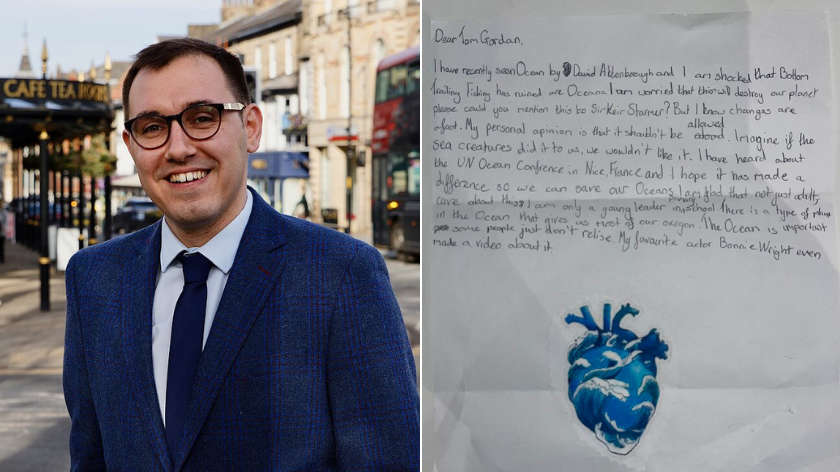 CAFE TEA ROOMS
Dear Tom Gordan,
I have recently seen Ocean by David Attenborough and I am shocked that Bottom
Trailing Fishing has ruined are Oceans. I am worried that this will destroy our planet
please could you mention this to Sir Keir Starmer? But I know changes are
afoot. My personal opinion is that it shouldn't be allowed. Imagine if the
sea creatures did it to us, we wouldn't like it. I have heard about
the UN Ocean Confrence in Nice, France and I hope it has made a
difference so we can save our Oceans. I am glad that not just adults
care about this, I am only a young leader in school. There is a type of
in the Ocean that gives us most of our oxegon. The Ocean is important
some people just don't relise. My favourite actor Bonnie Wright even
made a video about it.